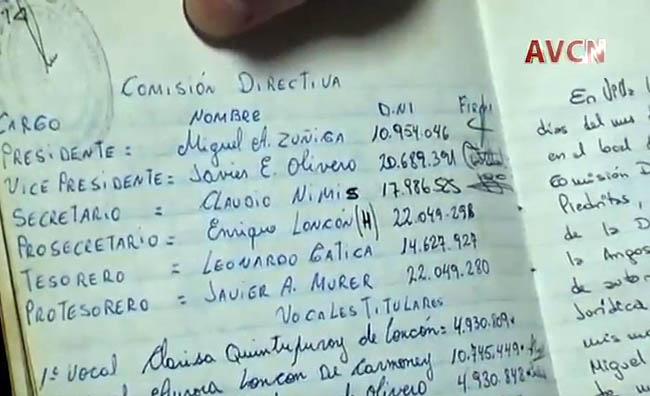 AVCN
COMISIÓN DIRECTIVA
CARGO NOMBRE D.N.I FIRMA
PRESIDENTE = Miguel A. ZUÑIGA 10.954.046
VICE PRESIDENTE = Javier E. Olivero 20.689.391
SECRETARIO = CLAUDIO NIMIS 17.986.585
PROSECRETARIO = Enrique LONCÓN (H) 22.049.298
TESORERO = LEONARDO GATICA 14.627.927
PROTESORERO = JAVIER A. MURER 22.049.280
VOCALES TITULARES
1º Vocal Clarisa Quintupuray de Loncón = 4.930.809
Aurora LONCON DE Carmoney 10.745.449
Olivero 4.930.848
En
días del mes
en el local de
Comisión D
Piedritas,
de la D
la Angos
de autor
Jurídica
mismo
Miguel